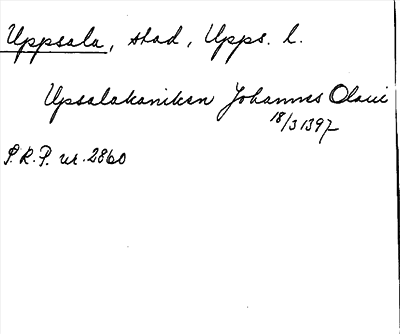 Uppsala, stad, Upps. l.
Upsalakaniken Johannes Olavi
18/3 1397
S.R.P. nr. 2860